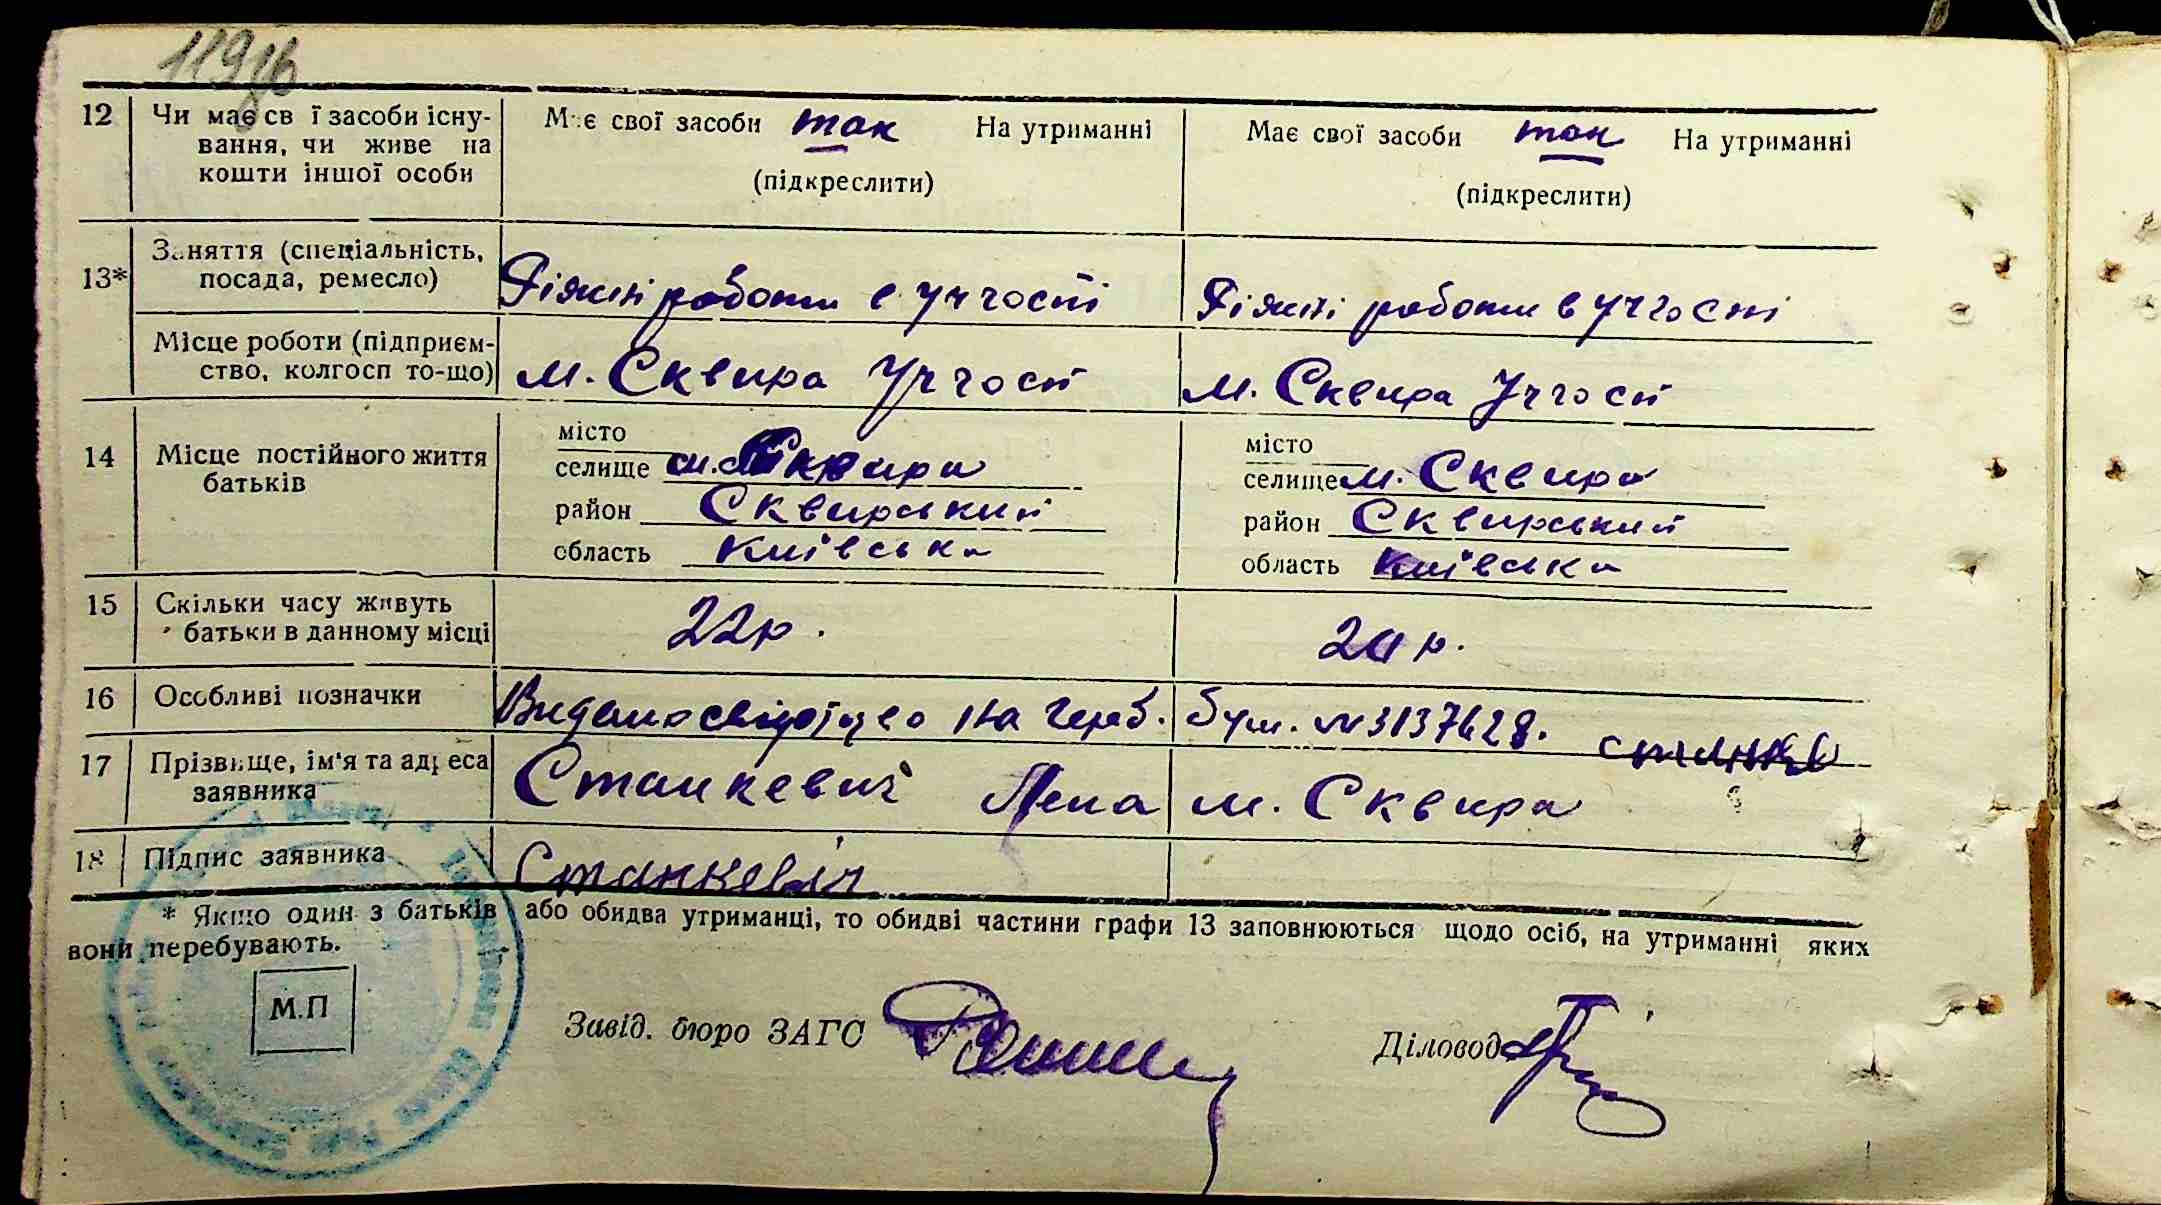 119зв
12 Чи має св ї засоби існу- М є свої засоби так На утриманні Має свої засоби так На утриманні
вання, чи живе на
кошти іншої особи (підкреслити) (підкреслити)
Заняття (спеціальність,
13* посада, ремесло) Ріжні роботи в Учгоспі Ріжні роботи в Учгоспі
Місце роботи (підприєм-
ство, колгосп то-що) м. Сквира Учгосп м. Сквира Учгосп
місто місто
14 Місце постійного життя селище м. Сквира селище м. Сквира
батьків район Сквирський район Сквирський
область Київська область Київська
15 Скільки часу живуть
батьки в данному місці 22 р. р.
16 Особливі позначки Видано на герб. бум. №3137628.
17 Прізвище, ім'я та адреса
заявника Станкевич Лена м. Сквира
18 Підпис заявника Станкевіч
* Якщо один з батьків або обидва утриманці, то обидві частини графи 13 заповнюються щодо осіб, на утриманні яких
вони перебувають.
М.П
Завід. бюро ЗАГС Діловод